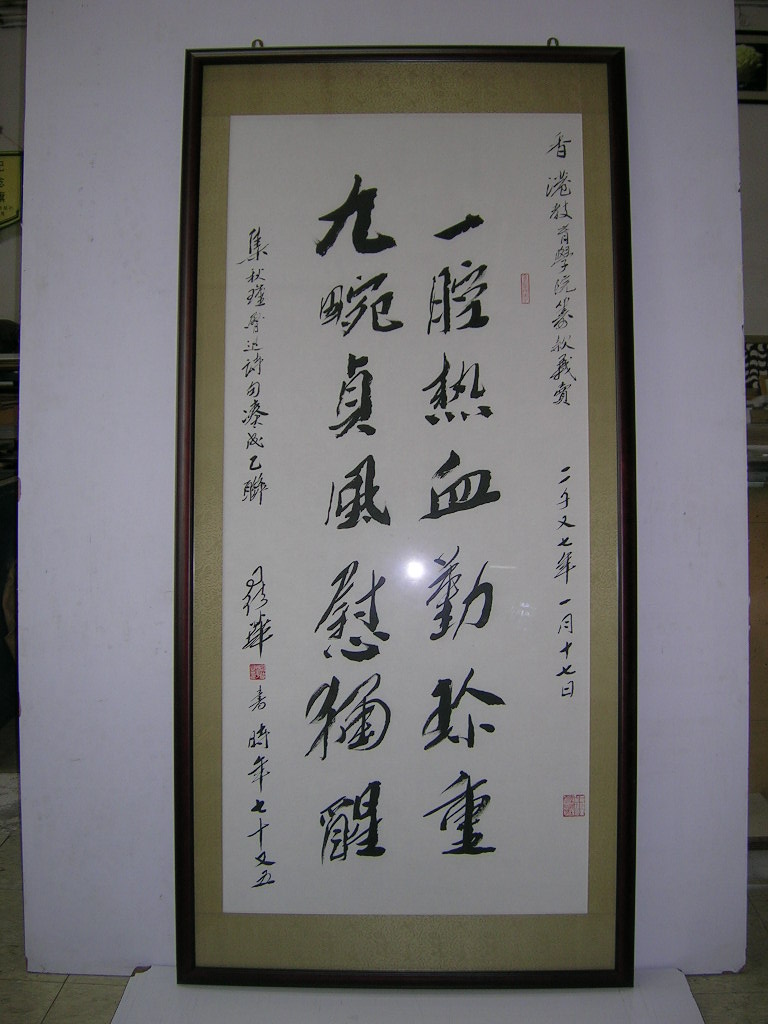 香港教育學院籌款義賣 二千又七年一月十七日
一腔热血勤珍重
九畹貞風慰獨醒
集秋瑾魯迅詩句湊成乙聯 書時年七十又五